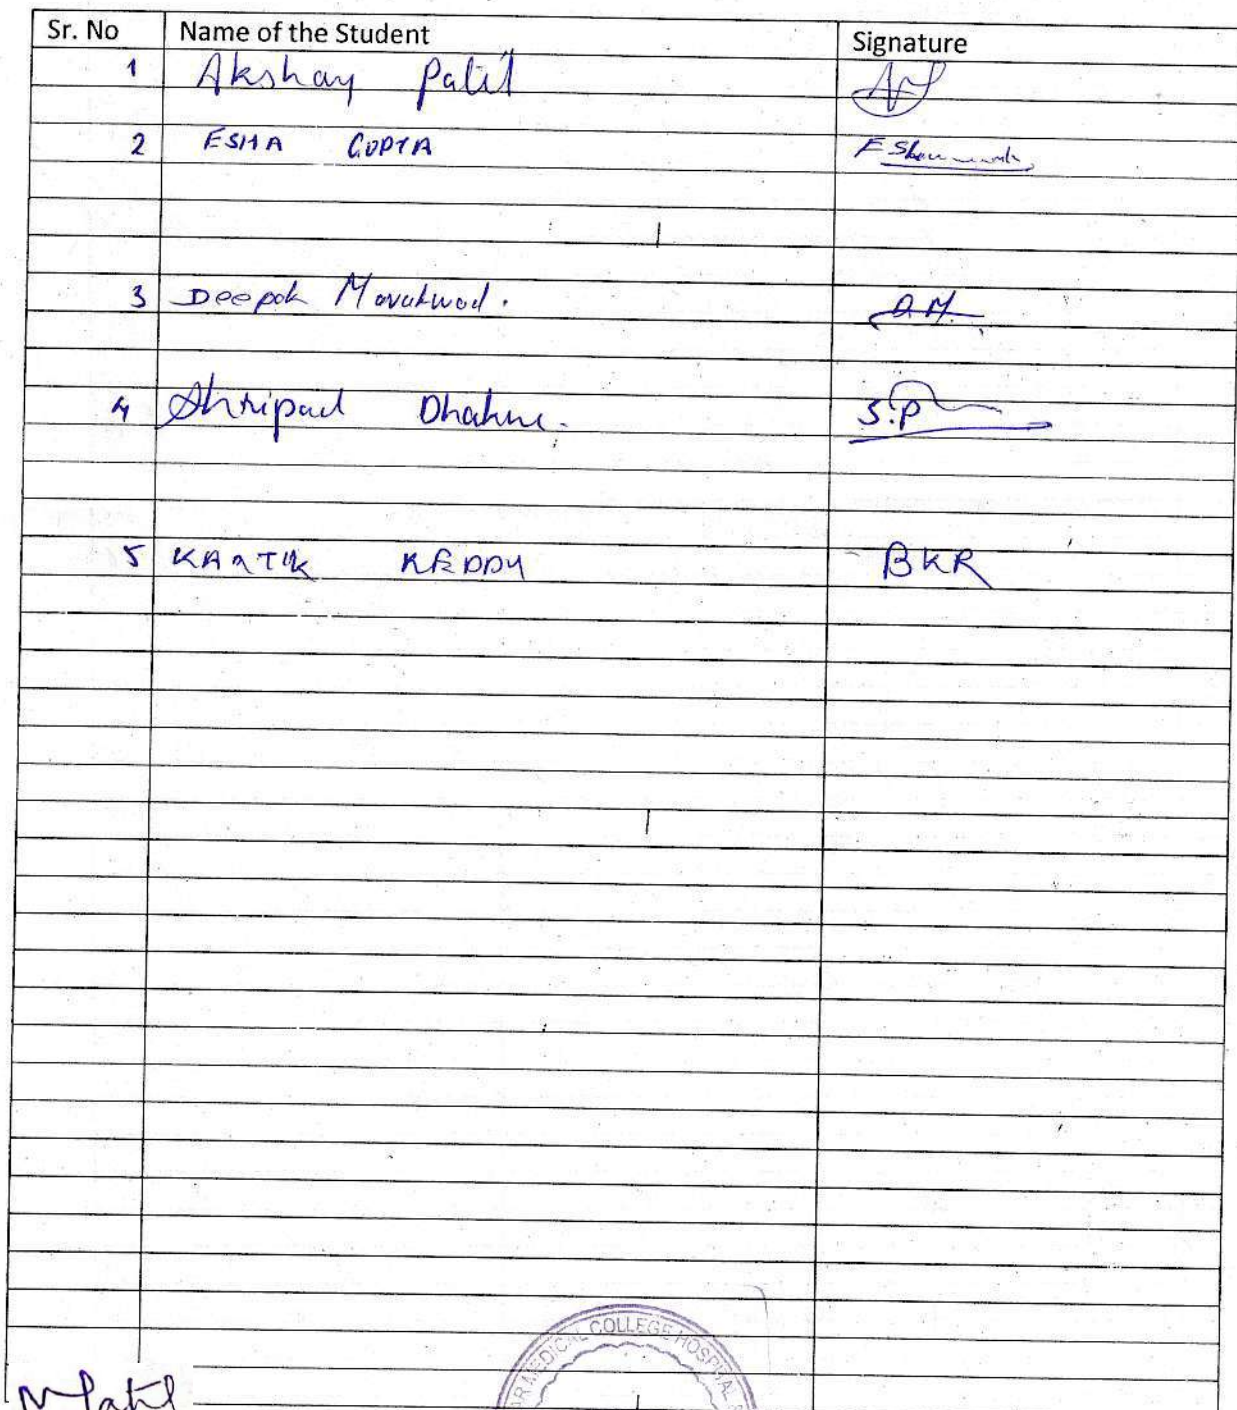 Sr. No Name of the Student Signature
1 Akshay Patil
2 ESHA GUPTA
3 Deepak
4 Shripad S.P
5 KARTIK REDDY BKR
MEDICAL COLLEGE HOSPITAL
Patil